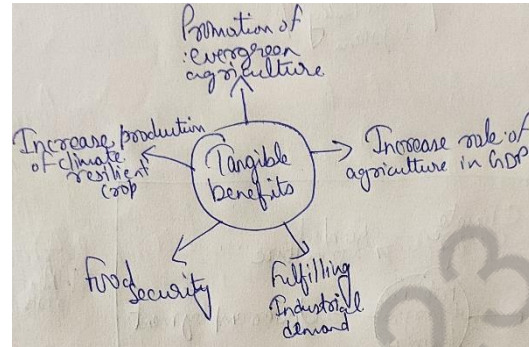 Promotion of
evergreen
agriculture
Increase production
of climate
resilient
crop
Tangible
benefits
Increase role of
agriculture in GDP
Food
security
Fulfilling
Industrial
demand